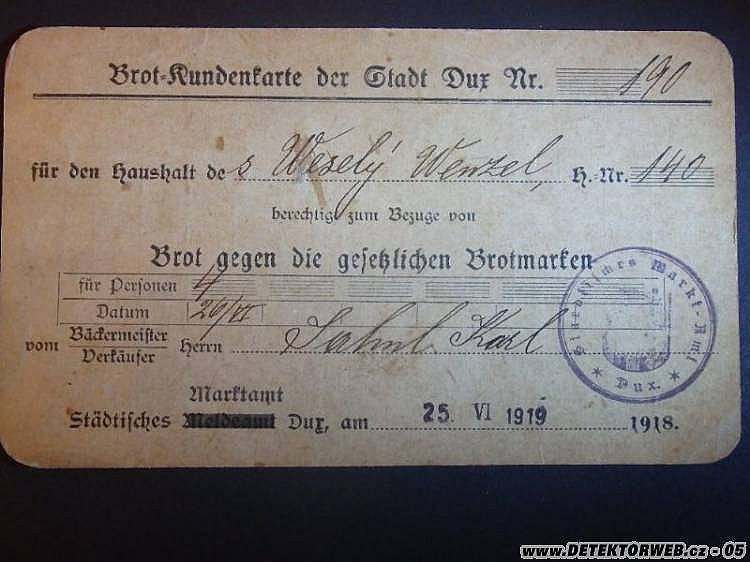 Brot-Kundenkarte der Stadt Dux Nr. 190
für den Haushalt des Weselý Wenzel, H.-Nr. 140
berechtigt zum Bezuge von
Brot gegen die gesetzlichen Brotmarken
für Personen 4
Datum 26/VI
vom Bäckermeister
Verkäufer Herrn Karl
Marktamt
Städtisches Meldeamt Dux, am 25. VI 1919 1918.
Städtisches Markt-Amt
* Dux. *
www.DETEKTORWEB.cz - 05